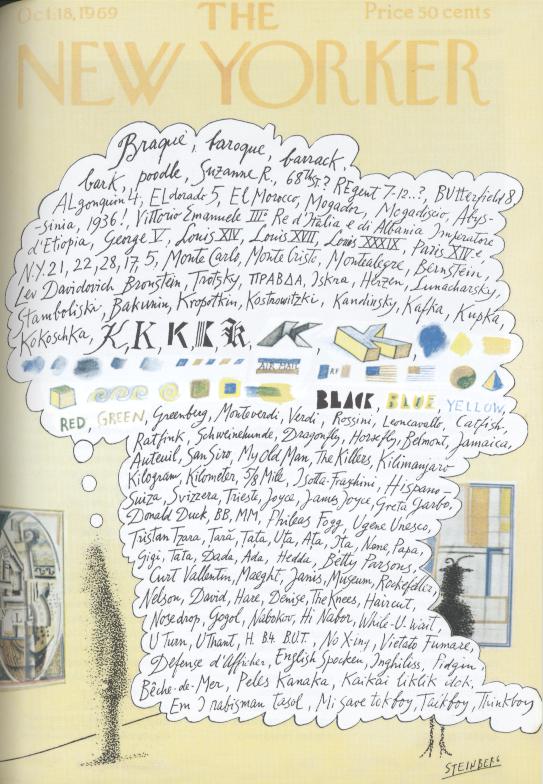 Oct. 18, 1969
THE
Price 50 cents
NEW YORKER
Braque, baroque, barrack,
bark, poodle, Suzanne R., 68th St.? REgent 7-12..?, BUtterfield 8,
ALgonquin 4, ELdorado 5, El Morocco, Mogador, Mogadiscio, Abys-
-sinia, 1936!, Vittorio Emanuele III: Re d'Italia e di Albania Imperatore
d'Etiopia, George V, Louis XIV, Louis XVII, Louis XXXIX, Paris XIV e,
N.Y. 21, 22, 28, 17, 5, Monte Carlo, Monte Cristo, Montealegre, Bernstein,
Lev Davidovich Bronstein, Trotsky, ПРАВДА, Iskra, Herzen, Lunacharsky,
Stamboliski, Bakunin, Kropotkin, Kostrowitzki, Kandinsky, Kafka, Kupka,
Kokoschka, K K K K K,
AIR MAIL
BLACK, BLUE, YELLOW,
RED, GREEN, Greenberg, Monteverdi, Verdi, Rossini, Leoncavallo, Catfish,
Ratfink, Schweinehunde, Dragonfly, Horsefly, Belmont, Jamaica,
Auteuil, San Siro, My Old Man, The Killers, Kilimanjaro
Kilogram, Kilometer, 5/8 Mile, Isotta-Fraschini, Hispano-
Suiza, Svizzera, Trieste, Joyce, James Joyce, Greta Garbo,
Donald Duck, BB, MM, Phileas Fogg, Ugene Unesco,
Tristan Tzara, Tara, Tata, Uta, Ata, Ita, None, Papa,
Gigi, Tata, Dada, Ada, Hedda, Betty Parsons,
Curt Vallentin, Maeght, Janis, Museum, Rockefeller
Nelson, David, Hare, Denise, The Knees, Haircut,
Nosedrop, Gogol, Nabokov, Hi Nabor, While-U-wait,
U Turn, U Thant, H. B4. BUT., No X-ing, Vietato Fumare,
Défense d'Afficher, English Spocken, Inghiliss, Pidgin
Bêche-de-Mer, Peles Kanaka, Kaikai liklik dok,
Em I rabisman tasol, Mi save tokboy, Talkboy, Thinkboy
STEINBERG